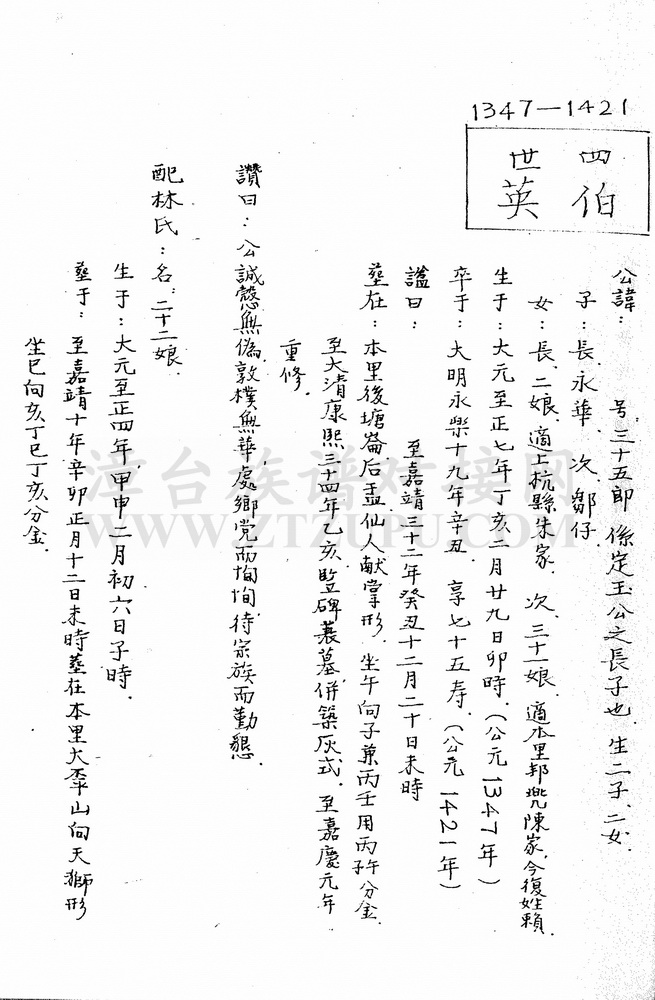 1347—1421
四世
伯英
公諱： 号，三十五郎 係定玉公之長子也．生二子、二女．
子：長，永華．次，鄒仔．
女：長、二娘，適上杭縣朱家．次、三十一娘．適本里邦兠陳家，今復姓賴．
生于：大元至正七年丁亥二月廿九日卯時．（公元1347年）
卒于：大明永樂十九年辛丑．享七十五寿．（公元1421年）
諡曰： 至嘉靖三十二年癸丑十二月二十日未時
塟在：本里後塘崙后盂仙人献掌形．坐午向子兼丙壬用丙子午分金．
至大清康熙三十四年乙亥監碑蓑墓，併築灰式．至嘉慶元年
重修．
讚曰：公誠愨無偽，敦樸無華，處鄉党而恂恂，待宗族而勤懇．
配林氏：名：二十二娘
生于：大元至正四年，甲申二月初六日子時．
塟于：至嘉靖十年辛卯正月十二日未時塟在本里大山向天獅形
坐巳向亥丁巳丁亥分金．
漳台族谱对接网
WWW.ZTZUPU.COM